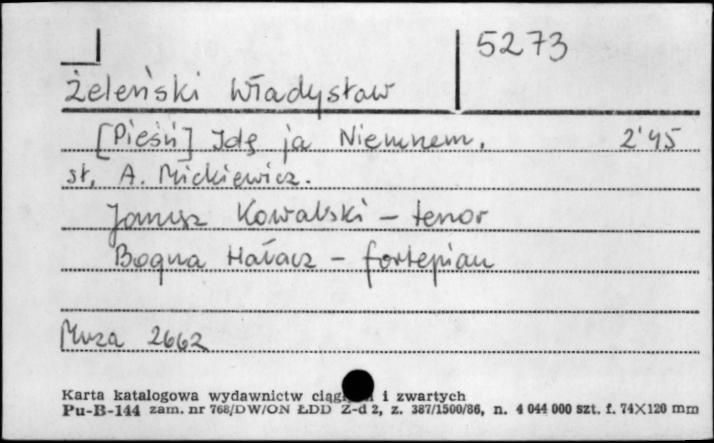 5273
Żeleński Władysław
[Pieśń] Idę ja Niemnem. 2'45
sł. A. Mickiewicz.
Janusz Kowalski – tenor
Bogna Hałacz – fortepian
Muza 2662
Karta katalogowa wydawnictw i zwartych
Pu-B-144 zam. nr 768/DW/ON ŁDD Z-d 2, z. 387/1500/86, n. 4 044 000 szt. f. 74×120 mm